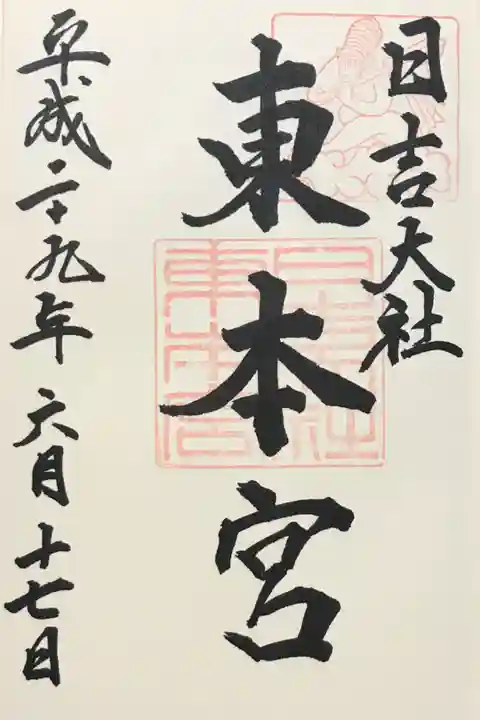 日吉大社
東本宮
平成二十九年 六月十七日